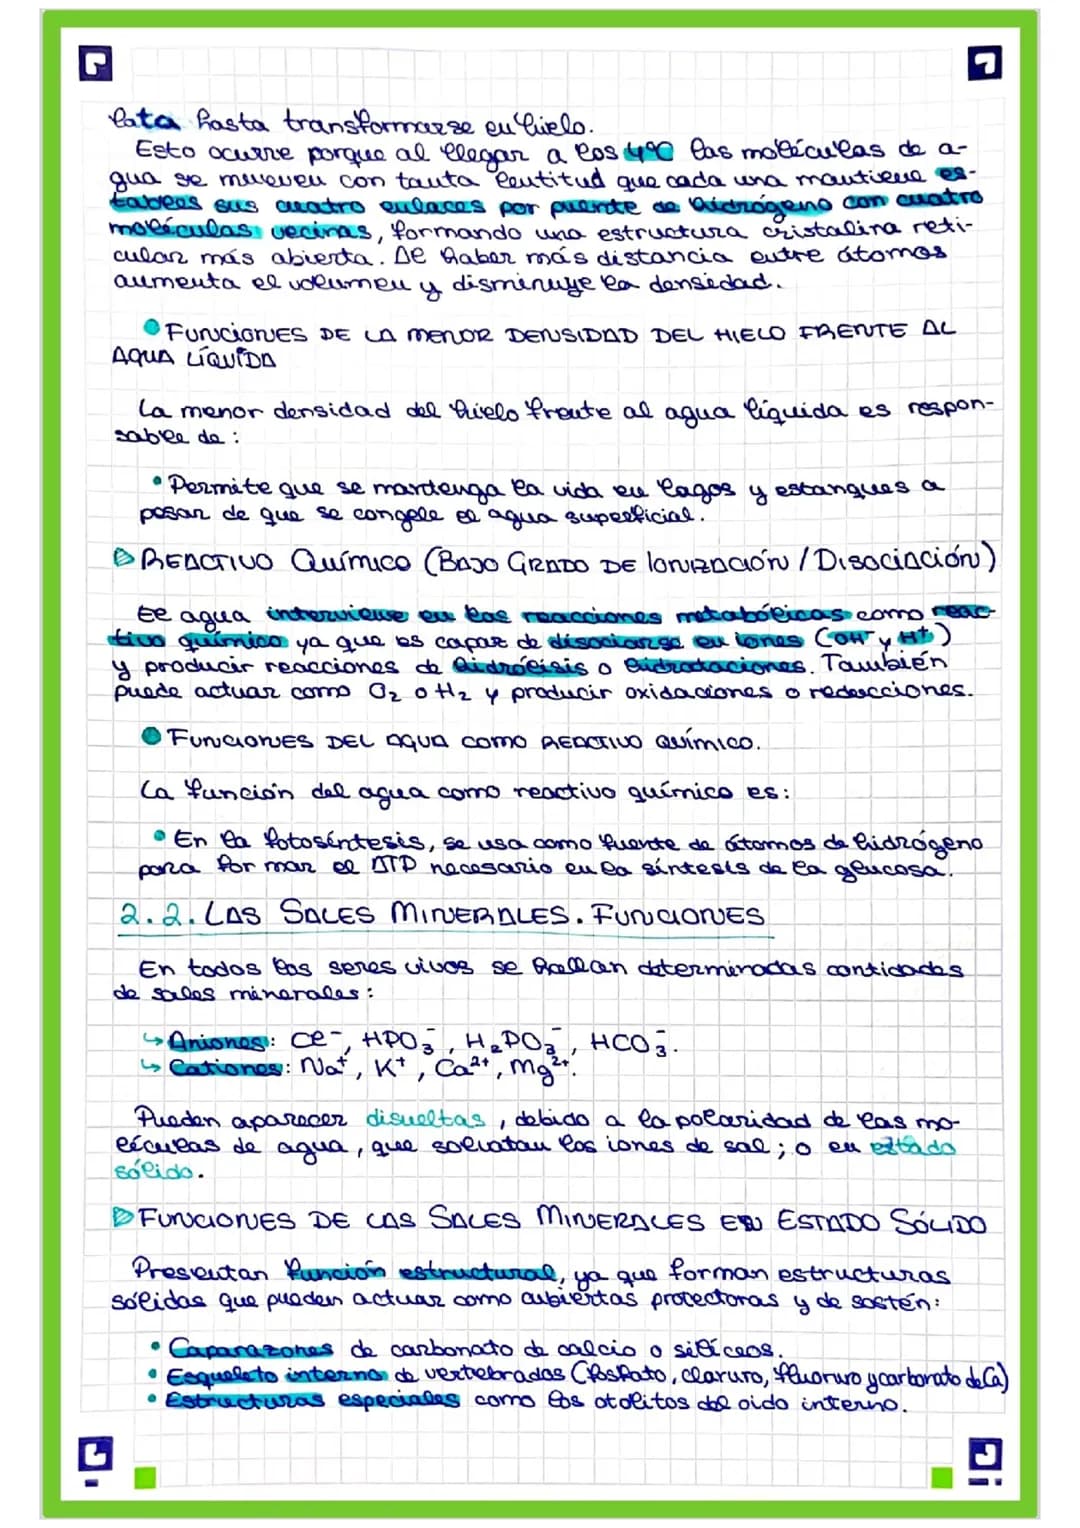 lata hasta transformarse en hielo.
Esto ocurre porque al llegar a los 4ºC las moléculas de a-
gua se mueven con tanta lentitud que cada una mantiene es-
tables sus cuatro enlaces por puente de hidrógeno con cuatro
moléculas vecinas, formando una estructura cristalina reti-
cular más abierta. Al haber más distancia entre átomos
aumenta el volumen y disminuye la densidad.
● FUNCIONES DE LA MENOR DENSIDAD DEL HIELO FRENTE AL
AQUA LÍQUIDA
La menor densidad del hielo frente al agua líquida es respon-
sable de:
• Permite que se mantenga la vida en lagos y estanques a
pesar de que se congele el agua superficial.
▷ REACTIVO QUÍMICO (BAJO GRADO DE IONIZACIÓN / DISOCIACIÓN)
El agua interviene en las reacciones metabólicas como reac-
tivo químico ya que es capaz de disociarse en iones (OH⁻ y H⁺)
y producir reacciones de hidrólisis o hidrataciones. También
puede actuar como O₂ o H₂ y producir oxidaciones o reducciones.
● FUNCIONES DEL AQUA COMO REACTIVO QUÍMICO.
La función del agua como reactivo químico es:
• En la fotosíntesis, se usa como fuente de átomos de hidrógeno
para formar el ATP necesario en la síntesis de la glucosa.
2.2. LAS SALES MINERALES. FUNCIONES
En todos los seres vivos se hallan determinadas cantidades
de sales minerales:
↳ Aniones: Cl⁻, HPO₃⁻, H₂PO₃⁻, HCO₃⁻.
↳ Cationes: Na⁺, K⁺, Ca²⁺, Mg²⁺.
Pueden aparecer disueltas, debido a la polaridad de las mo-
léculas de agua, que solvatan los iones de sal; o en estado
sólido.
▷ FUNCIONES DE LAS SALES MINERALES EN ESTADO SÓLIDO
Presentan función estructural, ya que forman estructuras
sólidas que pueden actuar como cubiertas protectoras y de sostén:
• Caparazones de carbonato de calcio o silíceos.
• Esqueleto interno de vertebrados (fosfato, cloruro, fluoruro y carbonato de Ca)
• Estructuras especiales como los otolitos del oído interno.